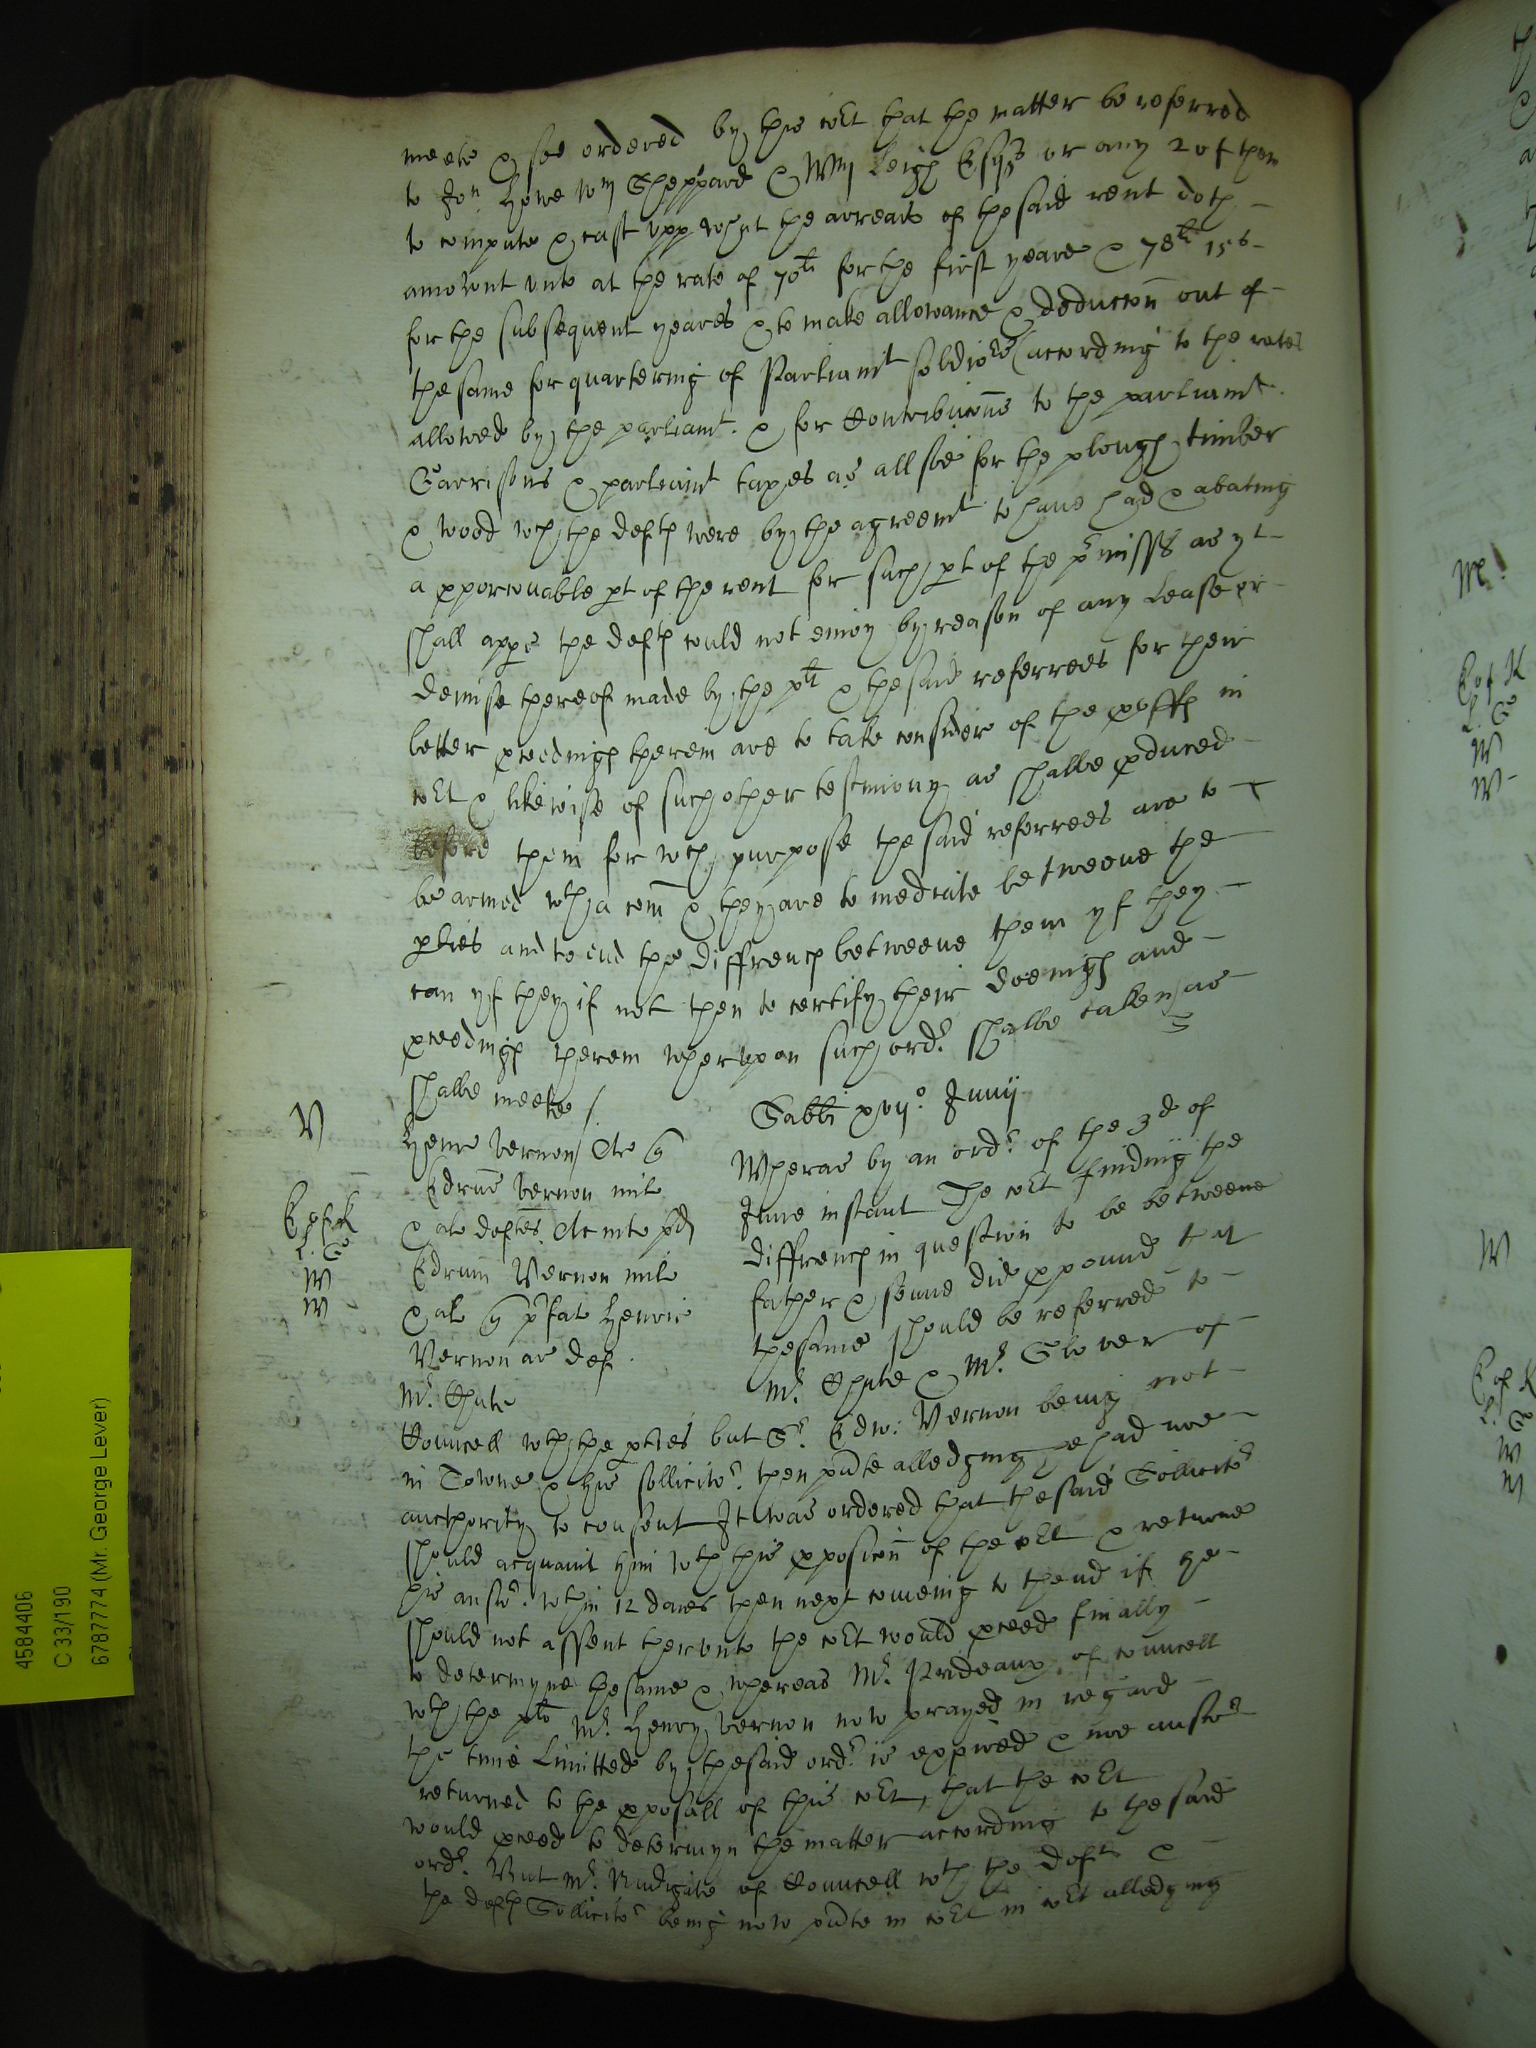 meete & soe ordered by this coʳt that the matter be referred
to Jon Howe Wm Sheppard & Wm Leigh Esqrs or any 2 of them
to compute & cast upp what the arreares of the said rent doth
amount unto at the rate of 70li for the first yeare & 78li 15s
for the subsequent yeares & to make allowance & deduccon out of
the same for quartering of Parliamt soldiors (according to the rates
allowed by the parliamt & for Contribucons to the parliamt
Garrisons & parliamt taxes as allsoe for the plough timber
& wood wch the defts were by the agreemt to have had & abating
a pporconable pt of the rent for such pt of the pmisses as yt
shall appe the defts could not enioy by reason of any Lease or
demise thereof made by the plt & the said referrees for their
better pceedings therein are to take consider of the pooffs in
coʳt & likewise of such other testimony as shalbe pduced
before them for wch purposse the said referrees are to
be armed wth a com & they are to mediate betweene the
pties and to end the diffrence betweene them yf they
can yf they if not then to certify their doeings and
pceedings therein wherupon such ordr shalbe taken as
shalbe meete /
Sabbi xvijo Junij
V
Henr Vernon Ar q
Edrus Vernon mile
& als deftes Ar inte pd
Edrum Vernon mile
& al q pfat Henric
Vernon ar def
Mr Chute
E of K
L. G
W
W
Wheras by an ordr of the 3d of
June instant The coʳt finding the
diffrence in question to be betweene
father & sonne did ppound that
the same should be referred to
Mr Chute & Mr Glover of
Councell wth the pties but Sr Edw: Vernon being not
in Towne & his sollicitor then psnte alledging he had noe
aucthority to consent It was ordered that the said Sollicitor
should acquaint him wth this pposicon of the coʳt & returne
his answr wthin 12 daies then next comeing to thend if he
should not assent therunto the coʳt would pceed finally
to determyne the same & whereas Mr Prideaux of councell
wth the plt Mr Henry Vernon now prayed in regard
the time Limitted by the said ordr is expired & noe answr
returned to the pposall of this coʳt, that the coʳt
would pceed to determyn the matter according to the said
ordr But Mr Rudgate of Councell wth the deft &
the defts Sollicitor being now psnte in coʳt in coʳt alledging
4584406
C 33/190
6787774 (Mr. George Lever)